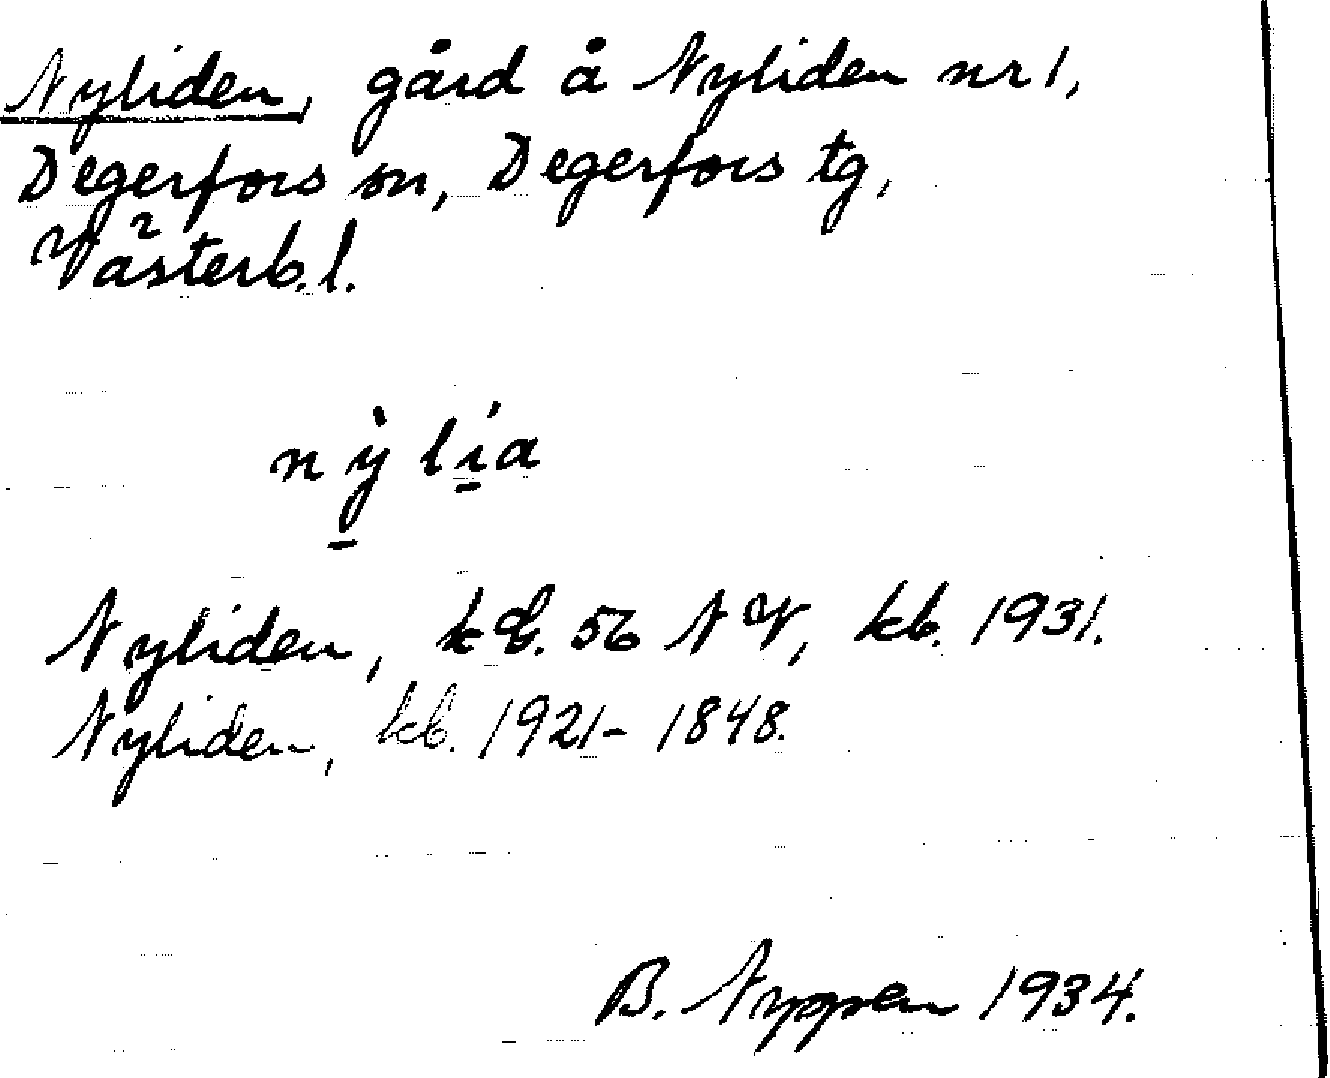 Nyliden, gård å Nyliden nr 1,
Degerfors sn, Degerfors tg,
Västerb. l.
nỳ̠lí̠a
Nyliden, k bl. 56 NV, kb. 1931.
Nyliden, kb. 1921-1848.
B. Nyppen 1934.